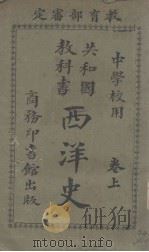 教育部審定
中學校用
共和國教科書
西洋史
卷上
商務印書館出版